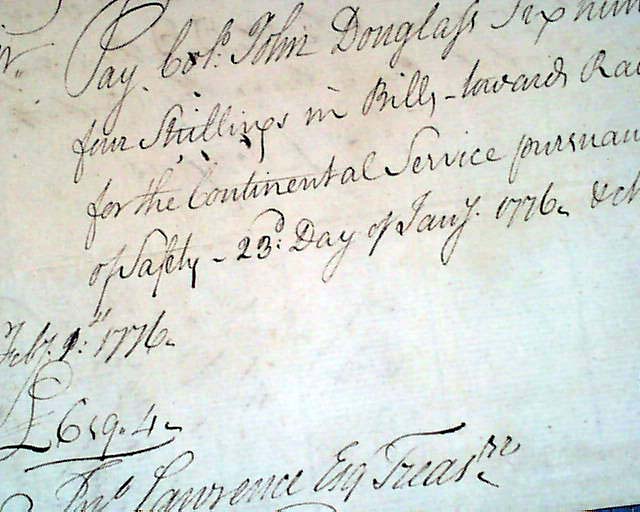 Pay. Colº. John Douglass Six hun
four Shillings in Bills, - towards Rai
for the Continental Service pursuan
of Safety - 23d: Day of Jany. 1776. & ch
Feby. 1st: 1776.
£ 619.4.
Jnº Lawrence Esq Treasrer